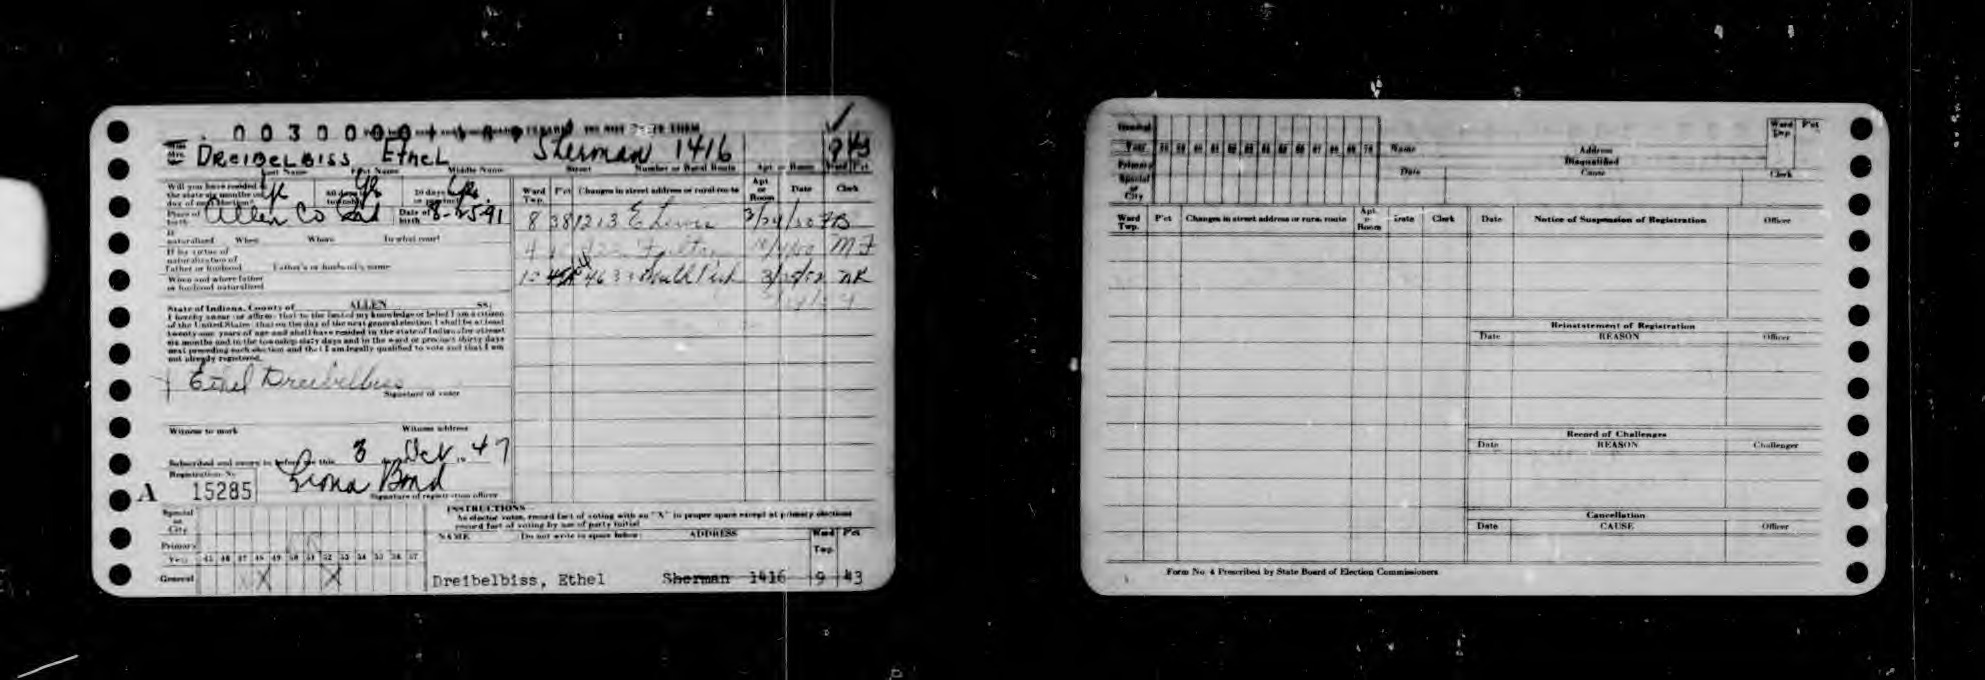 0030000
DREIBELBISS, Ethel Sherman 1416 9 43
Last Name First Name Middle Name Street Number or Rural Route Apt or Room Ward Pct
Will you have resided in
the state six months on
day of next election? 60 days in
township 30 days
in precinct
Place of
birth Allen Co Ind Date of
birth 8-25-91
If
naturalized When Where In what court
If by virtue of
naturalization of
Father or husband Father's or husband's name
When and where father
or husband naturalized
State of Indiana, County of ALLEN SS:
I hereby swear (or affirm) that to the best of my knowledge or belief I am a citizen
of the United States; that on the day of the next general election I shall be at least
twenty-one years of age and shall have resided in the state of Indiana for at least
six months and in the township sixty days and in the ward or precinct thirty days
next preceding such election and that I am legally qualified to vote and that I am
not already registered.
Ethel Dreibelbiss
Signature of voter
Witness to mark Witness address
Subscribed and sworn to before me this 3 Oct 19 47
Registration No
A 15285 Bond
Signature of registration officer
Ward
Twp. Pct Changes in street address or rural route Apt
or
Room Date Clerk
8 38 1213 E Lewis 3/24/50 FB
4 MF
463 3/25/52 NK
Special
or
City
Primary
Year 45 46 47 48 49 50 51 52 53 54 55 56 57
General X X
INSTRUCTIONS
As elector votes, record fact of voting with an "X" in proper space except at primary elections
record fact of voting by use of party initial
NAME (Do not write in space below) ADDRESS Ward
Twp. Pct
Dreibelbiss, Ethel Sherman 1416 9 43
General
Year 58 59 60 61 62 63 64 65 66 67 68 69 70 Name Address Ward
Twp Pct
Primary Disqualified
Special
or
City Date Cause Clerk
Ward
Twp. Pct Changes in street address or rural route Apt
or
Room Date Clerk Date Notice of Suspension of Registration Officer
Reinstatement of Registration
Date REASON Officer
Record of Challenges
Date REASON Challenger
Cancellation
Date CAUSE Officer
Form No. 4 Prescribed by State Board of Election Commissioners